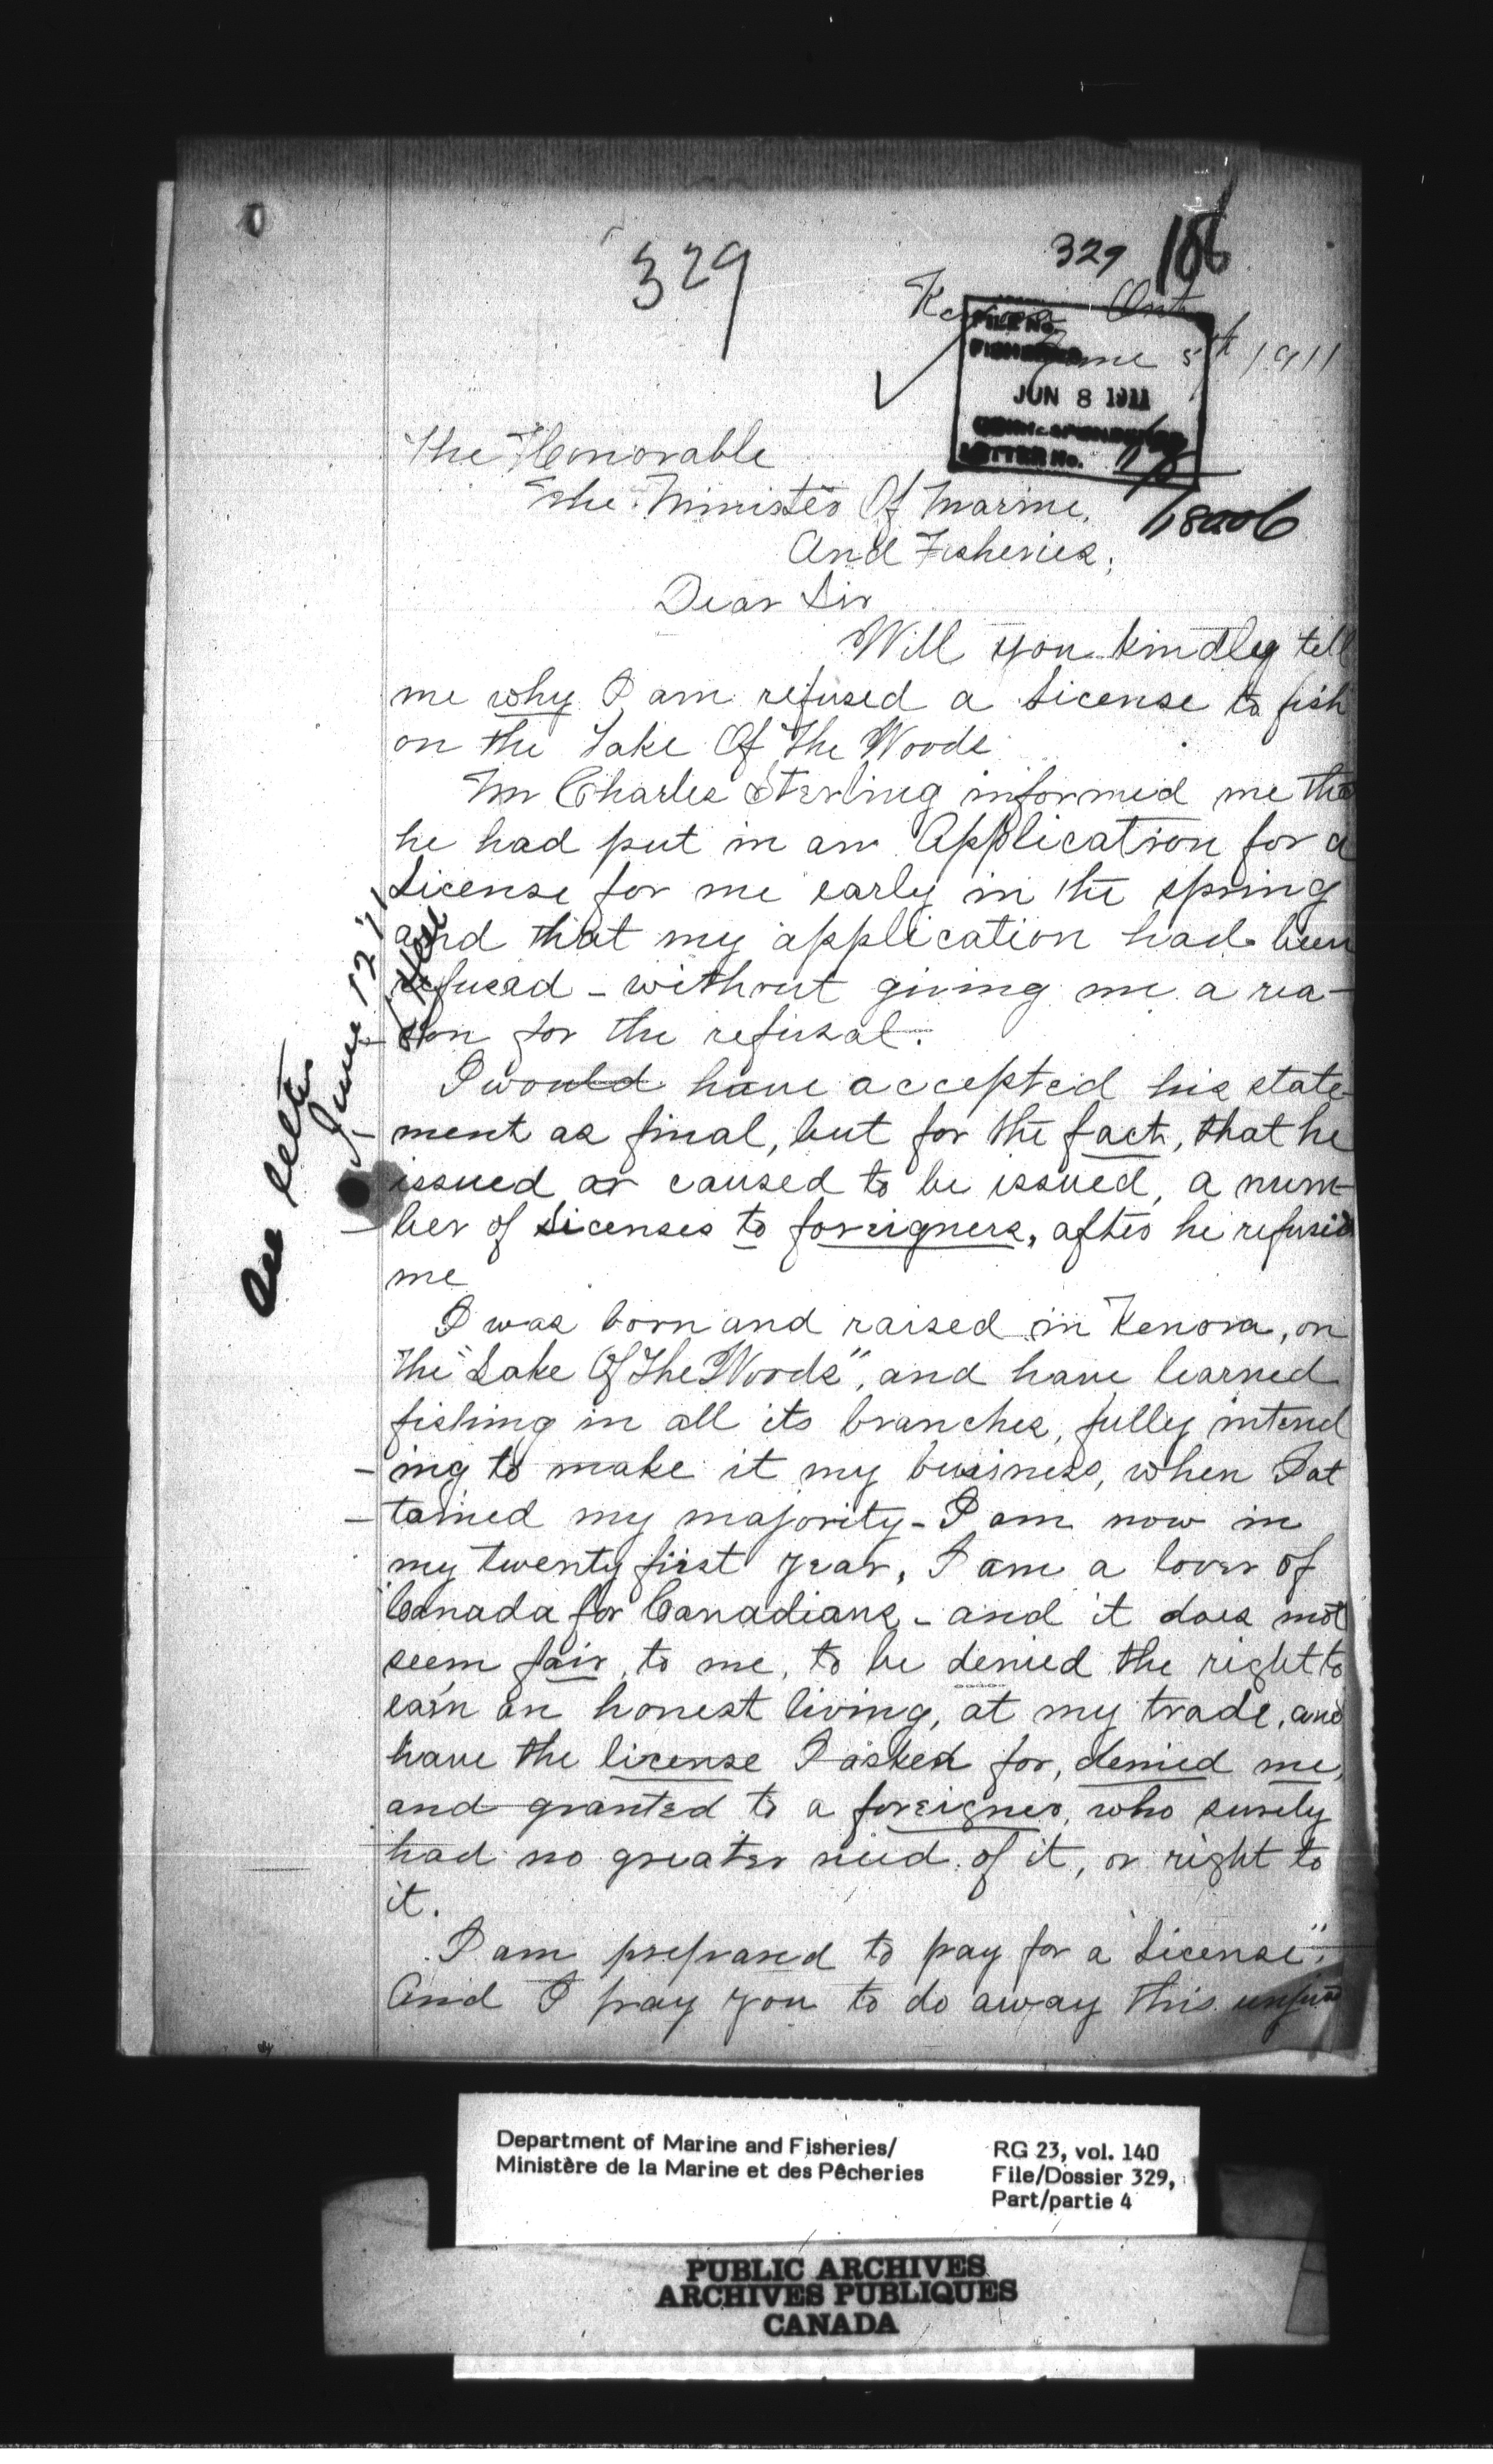 329
329 186
Kenora Ont
June 5th 1911
FILE No.
FISHERIES
JUN 8 1911
LETTER No.
18006
The Honorable
The Minister Of Marine,
And Fisheries,
Dear Sir
Will you kindly tell
me why I am refused a License to fish
on the Lake Of The Woods.
Mr Charles Sterling informed me that
he had put in an Application for a
License for me early in the spring
and that my application had been
refused - without giving me a rea-
son for the refusal.
I would have accepted his state-
ment as final, but for the fact, that he
issued or caused to be issued, a num-
ber of Licenses to foreigners, after he refused
me
I was born and raised in Kenora, on
the "Lake Of The Woods", and have learned
fishing in all its branches, fully intend
-ing to make it my business, when I at
-tained my majority - I am now in
my twenty first year, I am a lover of
"Canada for Canadians - and it does not
seem fair, to me, to be denied the right to
earn an honest living, at my trade, and
have the license I asked for, denied me,
and granted to a foreigner, who surely
had no greater need of it, or right to
it.
I am prepared to pay for a "License".
And I pray you to do away this
See letter
June 12 '11
Department of Marine and Fisheries/
Ministère de la Marine et des Pêcheries
RG 23, vol. 140
File/Dossier 329,
Part/partie 4
PUBLIC ARCHIVES
ARCHIVES PUBLIQUES
CANADA